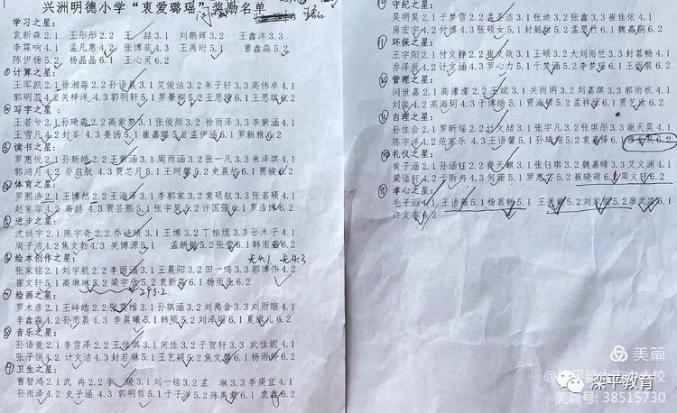 兴洲明德小学“衷爱璐瑶”奖励名单
学习之星:
袁新森2.1 王彤彤2.2 王 喆3.1 刘鹏辉3.2 王鑫洋3.3
李霖响4.1 孟凡惠4.2 张博菲4.3 王禹珩5.1 曹鑫淼5.2
陈伊杨5.2 杨晶晶6.1 王心灵6.2
①计算之星:
王军凯2.1 徐湘蕊2.2 孙语晨3.1 艾俊洁3.2 朱子轩3.3 高伟卓4.1
郭明芯4.2 关梓洋4.3 郭明轩5.1 罗景 5.2 王思 6.1 王思琪6.2
②写字之星:
王若兮2.1 孙琦淼2.2 高紫梦3.1 张俊颜3.2 徐雨泽3.3 王紫涵4.1
王雪凡4.2 封岑4.3 姜扬5.1 崔嘉琪5.2 孟伊涵6.1 罗新雅6.2
③读书之星:
罗惠悦2.1 孙新皓2.2 王紫涵3.1 周雨涵3.2 张一凡3.3 朱泽琪4.1
郭鸿月4.2 乔启航4.3 贾芯月5.1 王珂馨5.2 史晨皓6.1 贾骏6.2
④体育之星:
罗熙浩2.1 王博然2.2 王海泽3.1 李郭家3.2 袁硕航3.3 张茗硕4.1
赵家斗4.2 高皓4.3 贾芸熙5.1 张宇昊5.2 许国强6.1 罗浩博6.2
⑤进步之星:
沈炳宇2.1 陈宇奇2.2 乔琏琦3.1 王博3.2 丁相煜3.3 孙木子4.1
周子洁4.2 焦文勃4.3 关博源5.1 孟新 5.2 张莹6.1 韩雨嘉6.2
⑥绘本创作之星: 无4.1 无4.3
张家铭2.1 刘宇航2.2 李雨涵3.1 王晨阳3.2 田一鸣3.3 郭博伟4.2
崔文轩5.1 高琳琳5.2 梁宇欣5.2 袁新蕊6.1 杨雨欣6.2
⑦绘画之星:
罗木彦2.1 王峙皓2.2 张夏维3.1 孙琪涵3.2 刘禹含3.3 刘雨暄4.1
李鑫淼4.2 孙雨晨4.3 李晨曦5.1 韩颐5.2 刘泽 6.1 夏婉儿6.2
⑧音乐之星:
孙语萱2.1 李雪泽2.2 王佳琪3.1 何佳3.2 于贺轩3.3 武佳妮4.1
张子恒4.2 计文洁4.3 封若琳5.1 王艺颖5.2 焦文馨6.1 杨雨婷6.2
⑨卫生之星:
曹智鸿2.1 武冉2.2 李 3.1 刘一铭3.2 孟琳3.3 李庚宜4.1
孙雨泽4.2 史子涵4.3 郭明哲5.1 于子 5.2 陈禹 6.1 袁鑫6.2
守纪之星:
吴明昊2.1 于梦雪2.2 孟圣洁3.1 张迪3.2 张鑫3.3 崔佳依4.1
房宏宇4.2 付博4.3 张硕女5.1 封懿 5.2 孟思竹6.1 魏嘉桐6.2
环保之星:
王宇阳2.1 付文静2.2 崔文政3.1 王硕3.2 大刘雨竺3.3 封若畅4.1
乔泽辰4.2 计文涵4.3 罗心力5.1 于梦涵5.2 李梦瑶6.1 王雨晨6.2
管理之星:
闫世嘉2.1 高濛濛2.2 王斌3.1 关雨明3.2 刘嘉琪3.3 郭雨杭4.1
刘鼎4.2 高海玥4.3 于博皓5.1 贾海硕5.2 孟祥 6.1 贾艺 6.2
自理之星:
孙佳会2.1 罗昕瑶2.2 计文喆3.1 张宇凡3.2 张琪彤3.3 谢天昊4.1
陈宇洋4.2 范家乐4.3 王语馨5.1 孙琦 5.2 袁嘉怿6.1 6.2
礼仪之星:
黄子涵2.1 孙涵钰2.2 3.1 张钰琪3.2 魏嘉晴3.3 艾文渊4.1
梁语轩4.2 于昕冉4.3 何珊5.1 罗惠 5.2 崔晓萌6.1 周文 6.2
孝心之星:
毛子涵4.1 王语 5.1 杨若畅5.1 王孟 5.2 刘家 5.2 唐武 6.1
许文喜6.2
美篇
滦平教育
美篇号:38515730